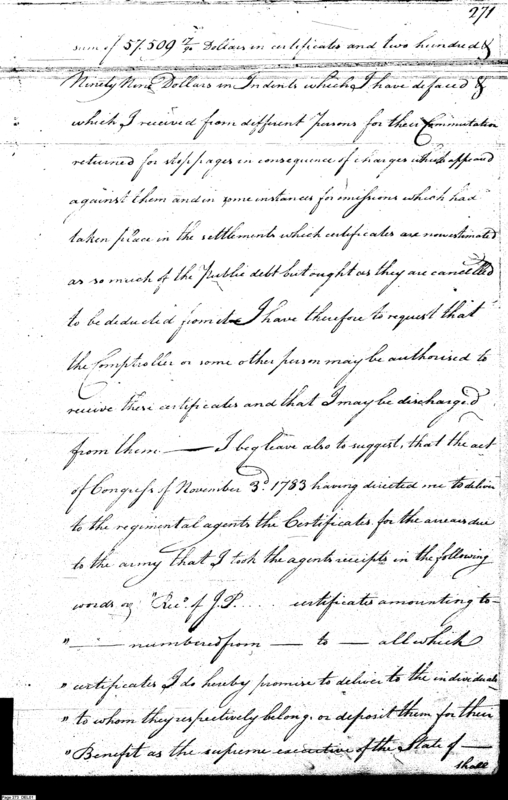 271
sum of 57.509 7/90 Dollars in certificates and two hundred &
Ninety Nine Dollars in Indents which I have defaced &
which I received from different Persons for their Commutation
returned for stoppages in consequence of charges which appeared
against them and in some instances for omissions which had
taken place in the settlements which certificates are now estimated
as so much of the Public debt but ought as they are cancelled
to be deducted from it I have therefore to request that
the Comptroller or some other person may be authorised to
receive these certificates and that I may be discharged
from them. — I beg leave also to suggest, that the act
of Congress of November 3d. 1783 having directed me to deliver
to the regimental agents the Certificates for the arrears due
to the army that I took the agents receipts in the following
words "Recd. of J.P..... certificates amounting to
" — numbered from — to — all which
" certificates I do hereby promise to deliver to the individuals
" to whom they respectively belong, or deposit them for their
" Benefit as the supreme executive of the State of —
shall